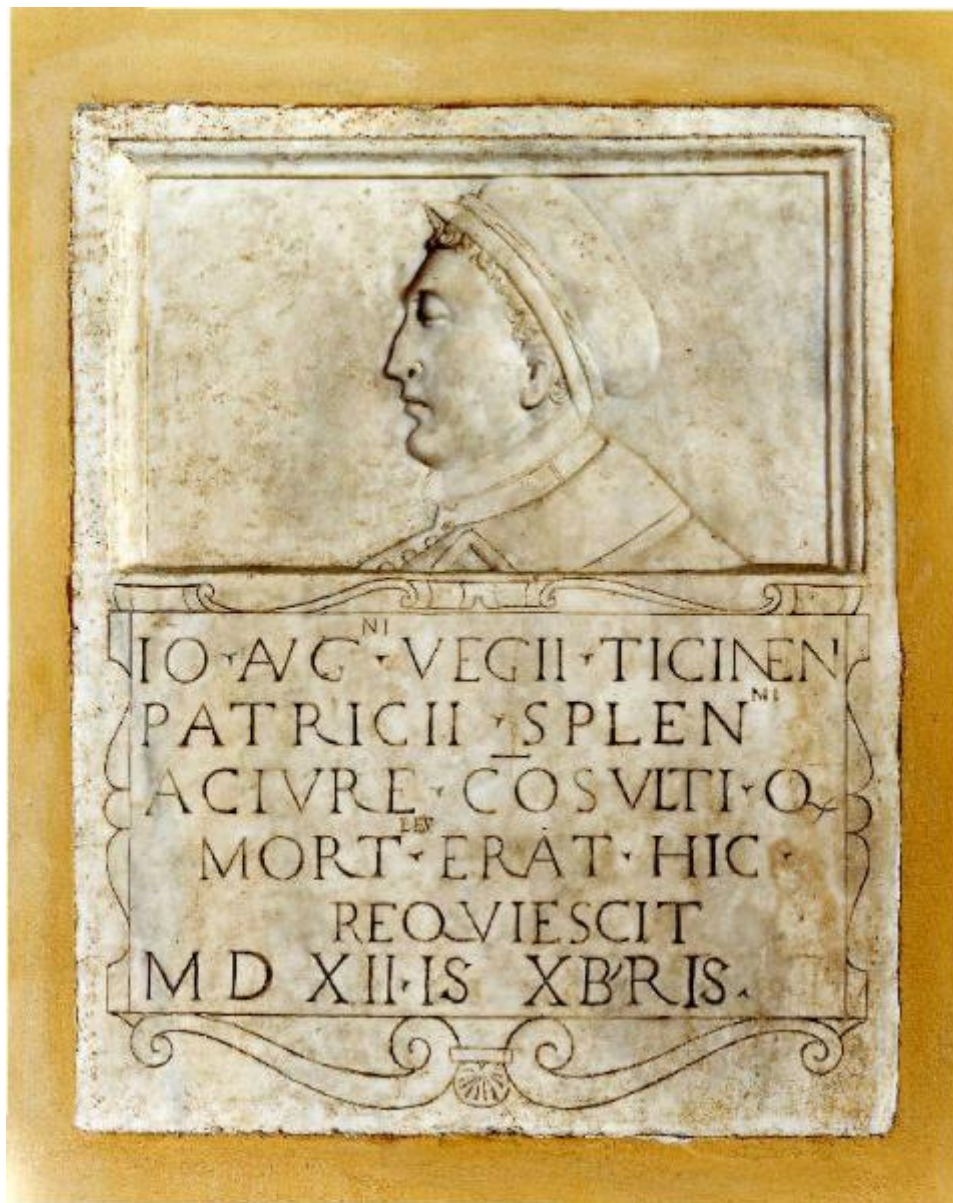 IO · AVG NI · VEGII · TICINEN
PATRICII · SPLEN NI
AC IVRE · COSVLTI · Q
MORT · ERAT · HIC ·
REQVIESCIT
MD XII · IS XB'RIS ·